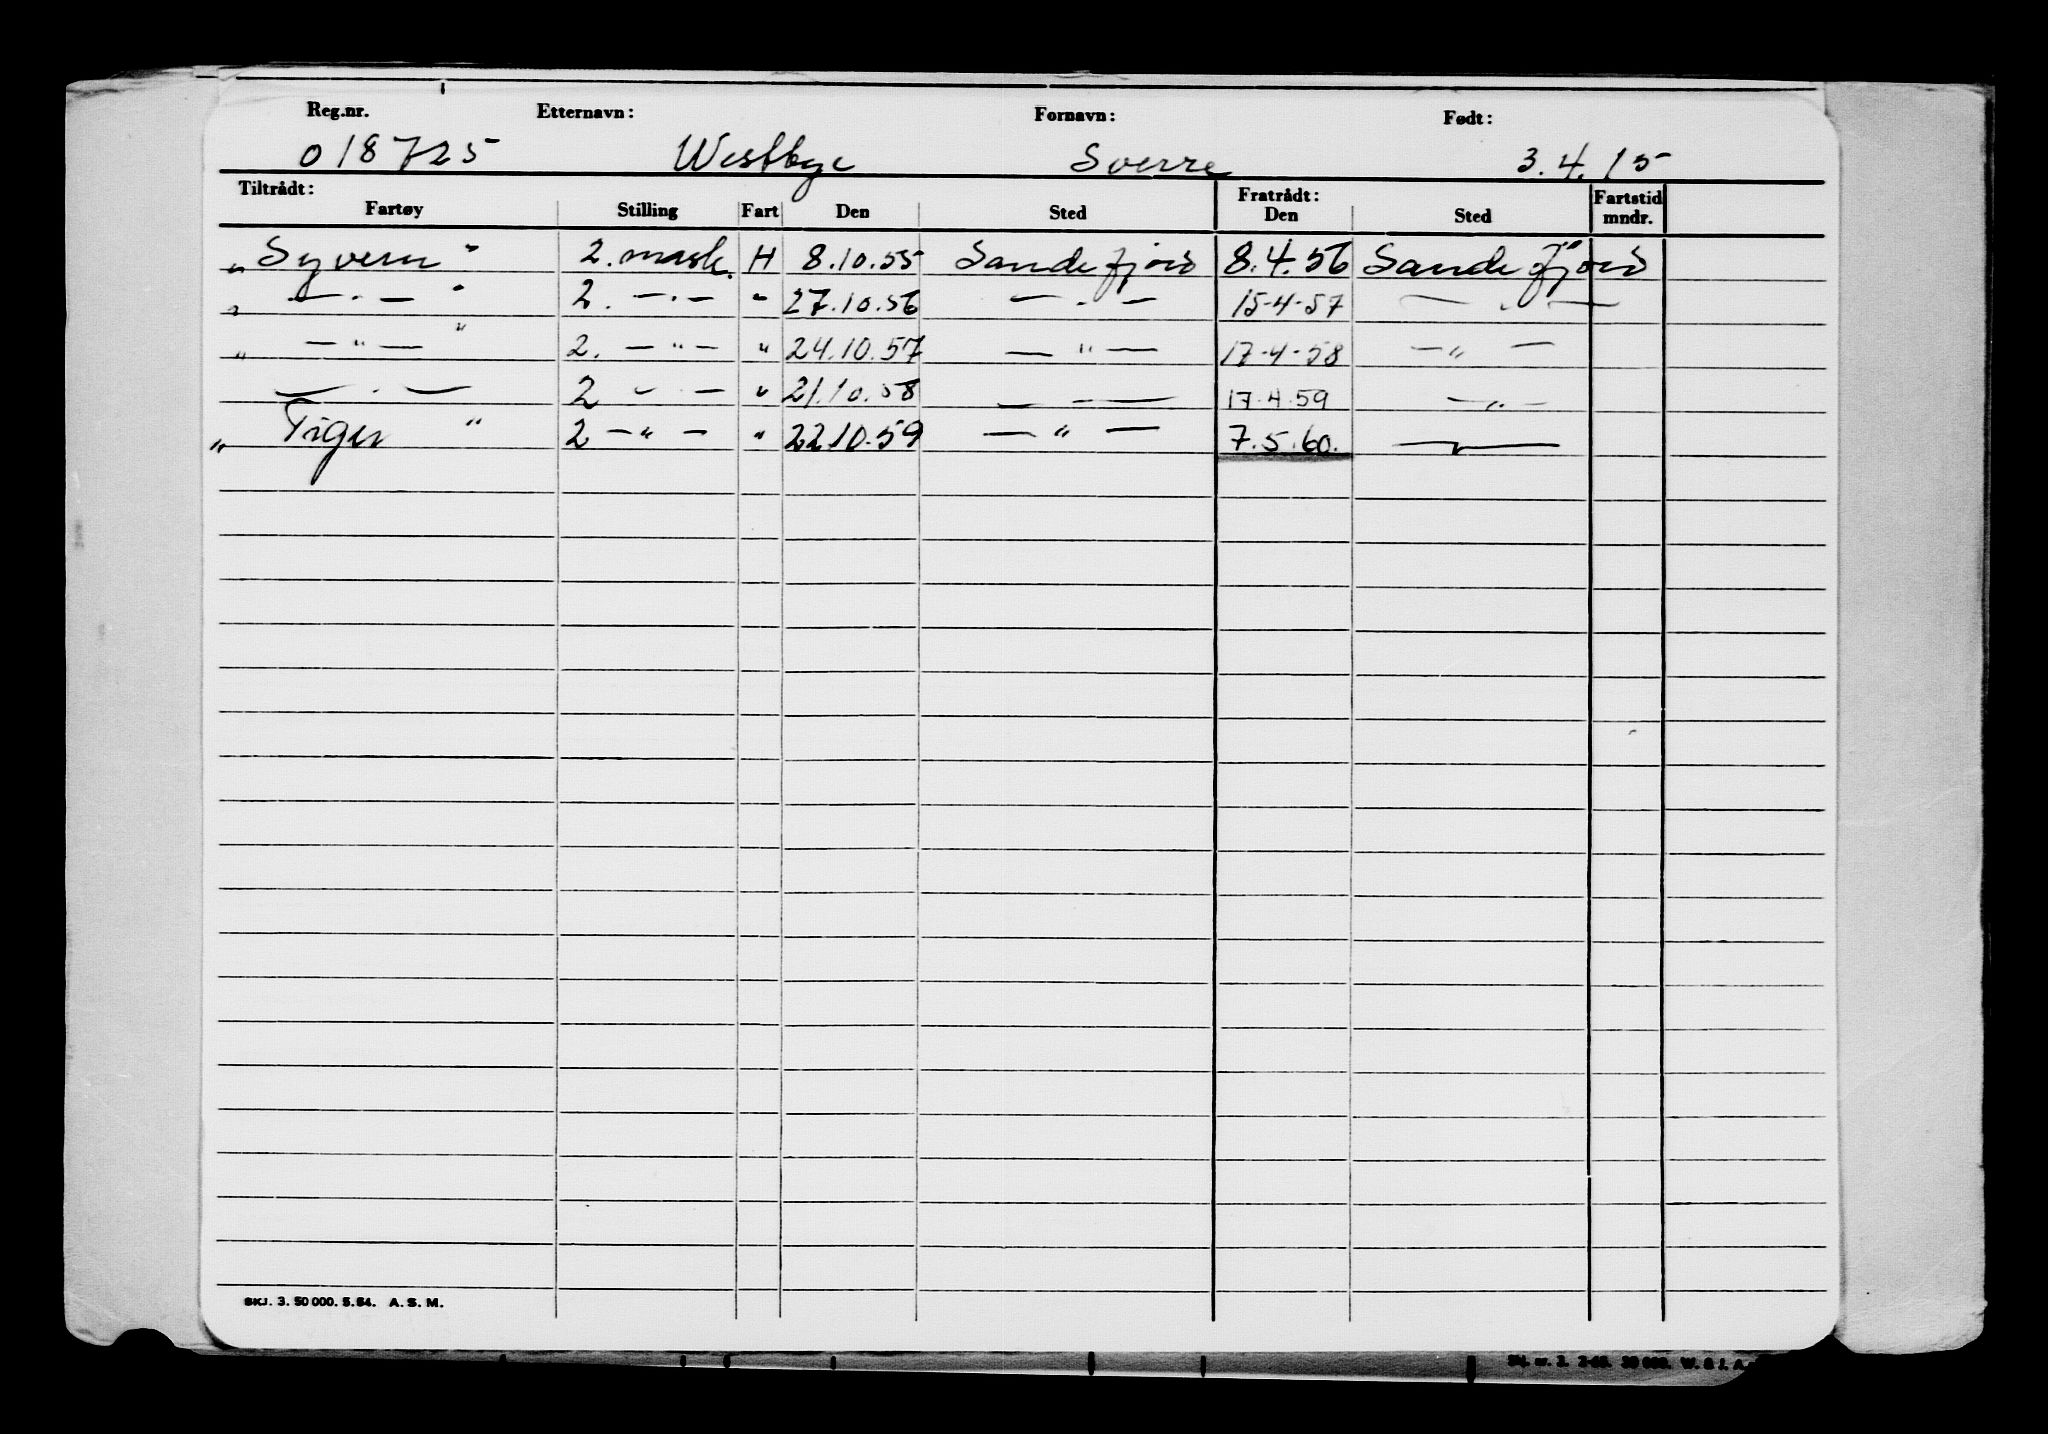 Reg.nr. Etternavn: Fornavn: Født:
018725 Westbye Sverre 3.4.15
Tiltrådt: Fratrådt:
Fartøy Stilling Fart Den Sted Den Sted Fartstid mndr.
„Syvern" 2. mask. H 8.10.55 Sandefjord 8.4.56 Sandefjord
„ — . — " 2. — . — " 27.10.56 — . — 15-4-57 — . —
„ — " — " 2. — " — " 24.10.57 — " — 17-4-58 — " —
— . — 2 — . — " 21.10.58 — — — 17.4.59 — " —
„Tiger" 2 — " — " 22.10.59 — " — 7.5.60. — " —
SKJ. 3. 50 000. 5.54. A. S. M.